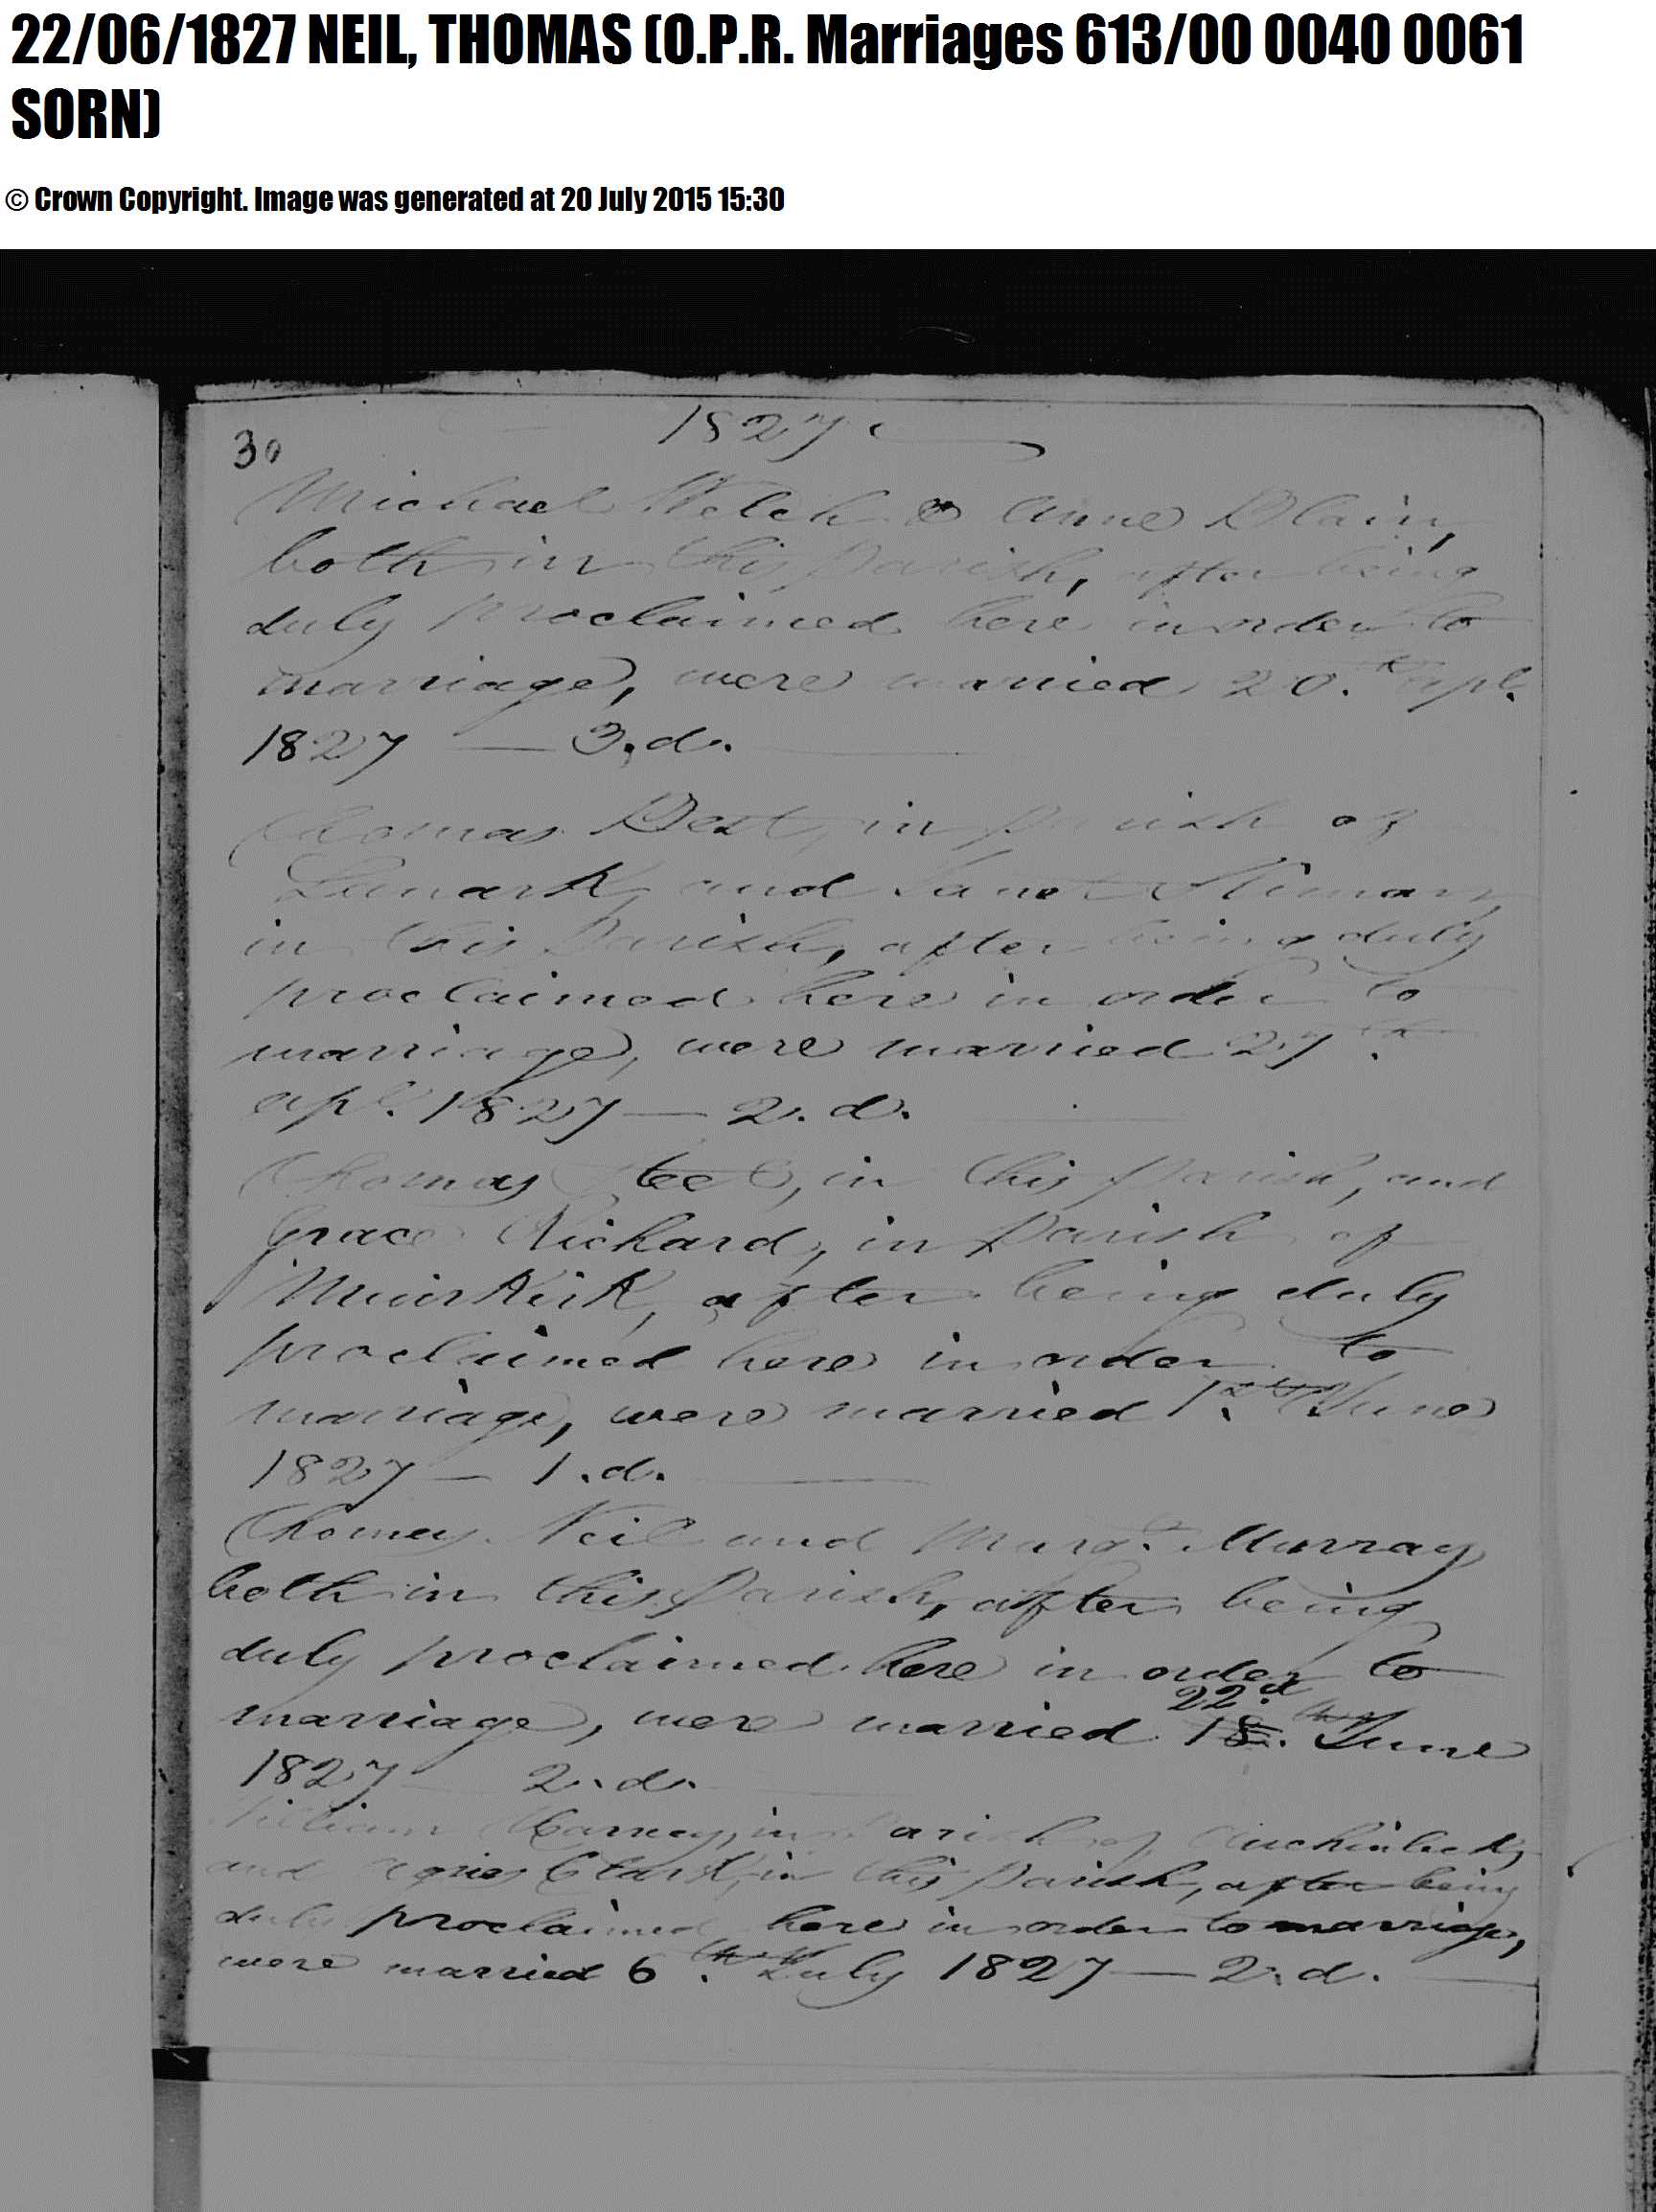 22/06/1827 NEIL, THOMAS (O.P.R. Marriages 613/00 0040 0061
SORN)
© Crown Copyright. Image was generated at 20 July 2015 15:30
30
1827
Michael Welch & Anne Blain,
both in this Parish, after being
duly proclaimed here in order to
marriage, were married 20.th apl.
1827 — 3.d.
Thomas Best, in Parish of
Lanark, and Janet
in this Parish, after being duly
proclaimed here in order to
marriage, were married 27.th
apl. 1827 — 2.d.
Thomas in this Parish, and
Grace Richard, in Parish of
Muirkirk, after being duly
proclaimed here in order to
marriage, were married 1.st June
1827 — 1.d.
Thomas Neil and Margt. Murray
both in this Parish, after being
duly proclaimed here in order to
22.d
marriage, were married 18. June
1827 — 2.d.
William in Parish of Auchinleck,
and Agnes Clark, in this Parish, after being
duly proclaimed here in order to marriage,
were married 6.th July 1827 — 2.d.